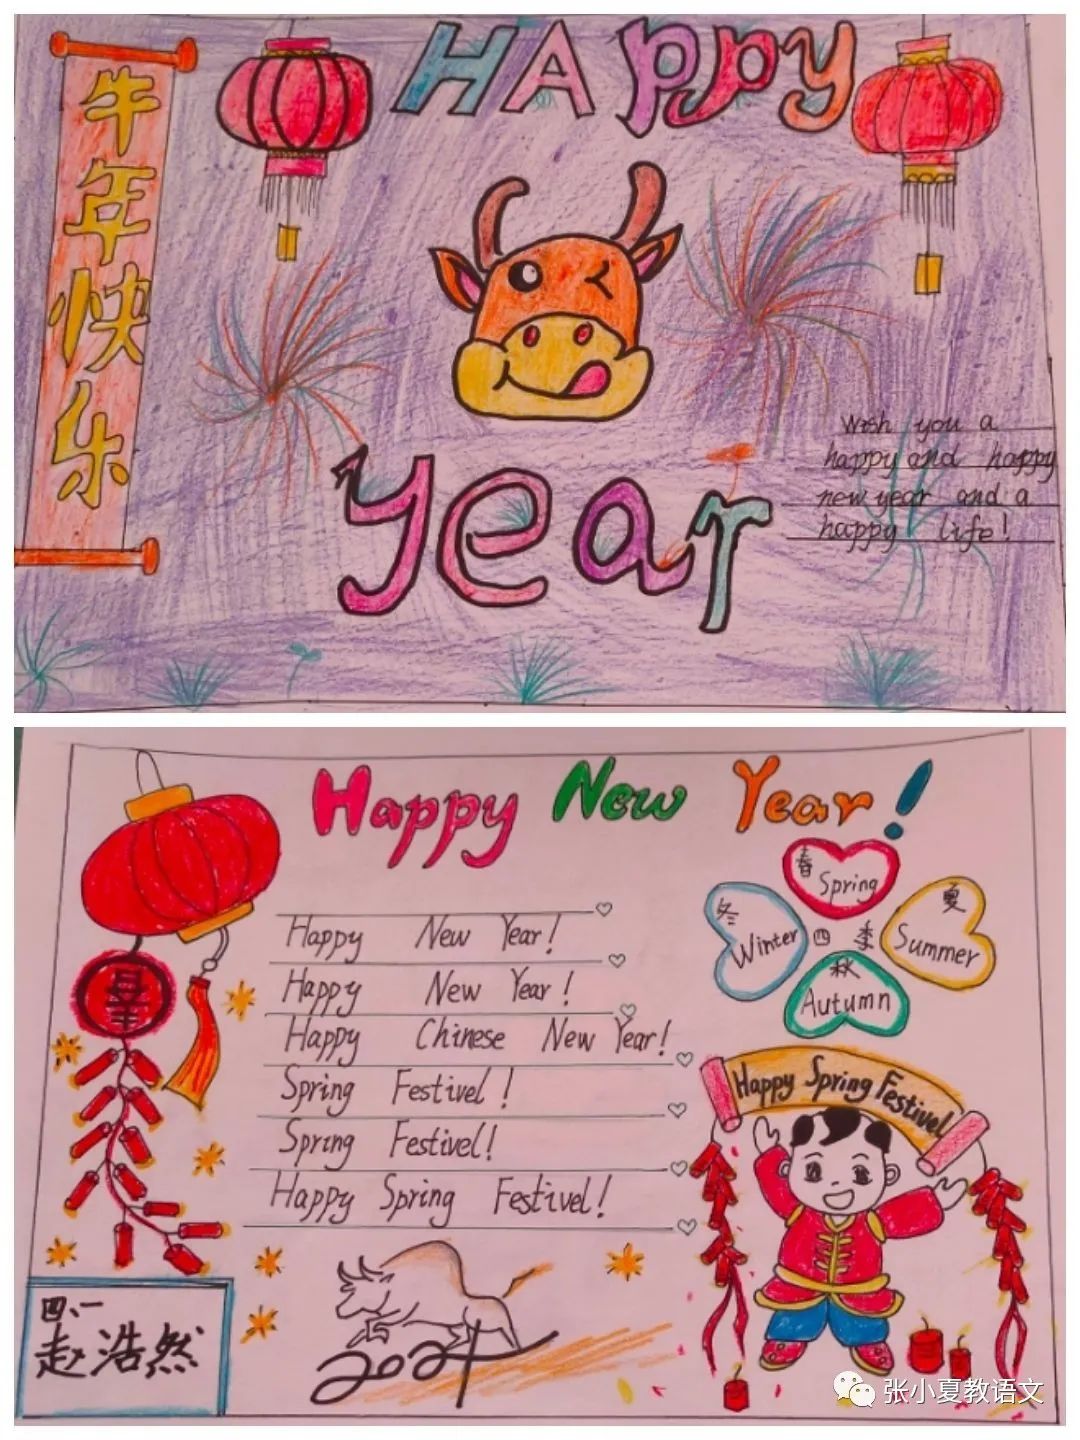 HAppy
牛年快乐
Wish you a
happy and happy
new year and a
happy life!
year
Happy New Year!
春
Spring
冬
Winter
四季
夏
Summer
秋
Autumn
Happy New Year!
Happy New Year!
Happy Chinese New Year!
Spring Festivel!
Spring Festivel!
Happy Spring Festivel!
Happy Spring Festivel
2021
四、一
赵浩然
张小夏教语文